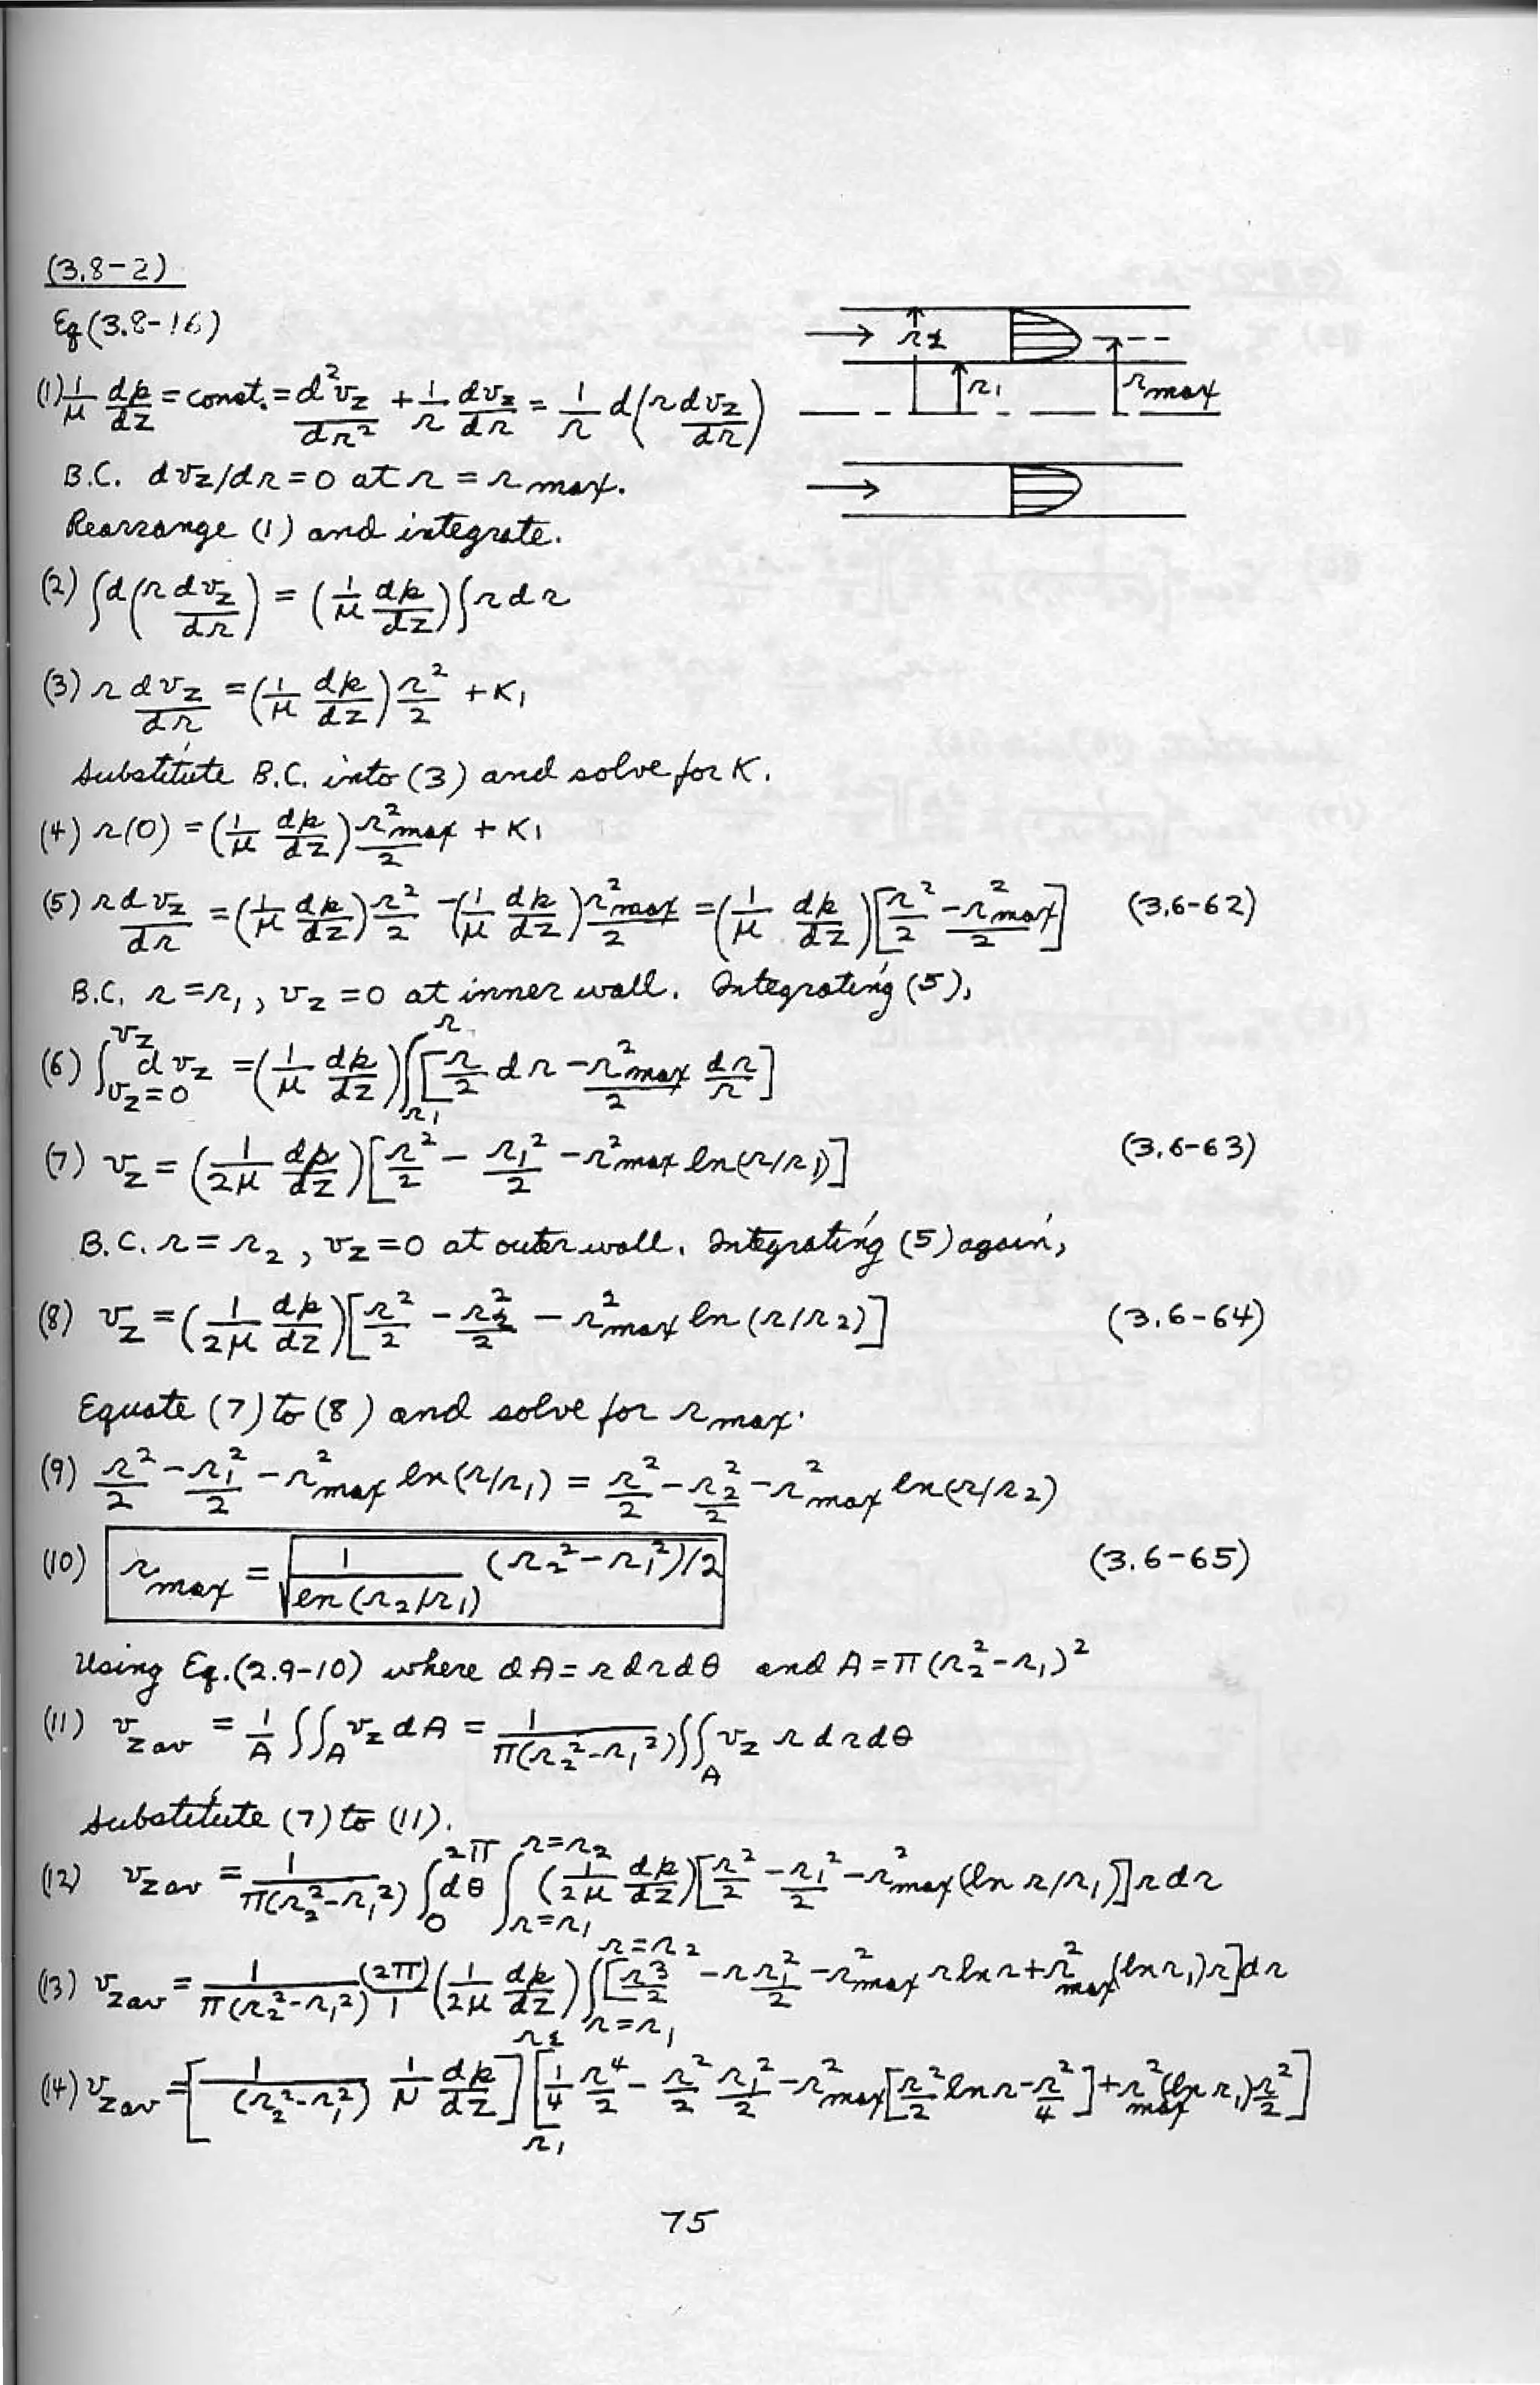 (3.8-2)
Eq (3.8-16)
(1) 1/μ dp/dz = const. = d²v_z/dr² + 1/r dv_z/dr = 1/r d(r dv_z/dr)
r_2
r_1
r_max
B.C. dv_z/dr = 0 at r = r_max.
Rearrange (1) and integrate.
(2) ∫d(r dv_z/dr) = (1/μ dp/dz)∫r dr
(3) r dv_z/dr = (1/μ dp/dz) r²/2 + K_1
Substitute B.C. into (3) and solve for K.
(4) r(0) = (1/μ dp/dz) r²_max/2 + K_1
(5) r dv_z/dr = (1/μ dp/dz) r²/2 - (1/μ dp/dz) r²_max/2 = (1/μ dp/dz)[r²/2 - r²_max/2] (3.6-62)
B.C. r = r_1, v_z = 0 at inner wall. Integrating (5),
(6) ∫_{v_z=0}^{v_z} dv_z = (1/μ dp/dz)∫_{r_1}^{r} [r/2 dr - r²_max/2 dr/r]
(7) v_z = (1/2μ dp/dz)[r²/2 - r_1²/2 - r²_max ln(r/r_1)] (3.6-63)
B.C. r = r_2, v_z = 0 at outer wall. Integrating (5) again,
(8) v_z = (1/2μ dp/dz)[r²/2 - r_2²/2 - r²_max ln(r/r_2)] (3.6-64)
Equate (7) to (8) and solve for r_max.
(9) r²/2 - r_1²/2 - r²_max ln(r/r_1) = r²/2 - r_2²/2 - r²_max ln(r/r_2)
(10) r_max = √(1/ln(r_2/r_1) (r_2² - r_1²)/2) (3.6-65)
Using Eq.(2.9-10) where dA = r dr dθ and A = π(r_2² - r_1)²
(11) v_z av = 1/A ∫∫_A v_z dA = 1/π(r_2² - r_1²) ∫∫_A v_z r dr dθ
Substitute (7) to (11).
(12) v_z av = 1/π(r_2² - r_1²) ∫_0^{2π} dθ ∫_{r=r_1}^{r=r_2} (1/2μ dp/dz)[r²/2 - r_1²/2 - r²_max (ln r/r_1)] r dr
(13) v_z av = 1/π(r_2² - r_1²) (2π)/1 (1/2μ dp/dz) ∫_{r=r_1}^{r=r_2} [r³/2 - r r_1²/2 - r²_max r ln r + r²_max (ln r_1) r] dr
(14) v_z av = [1/(r_2² - r_1²) 1/μ dp/dz] [1/4 r⁴/2 - r²/2 r_1²/2 - r²_max [r²/2 ln r - r²/4] + r²_max (ln r_1) r²/2]_{r_1}^{r_2}
75